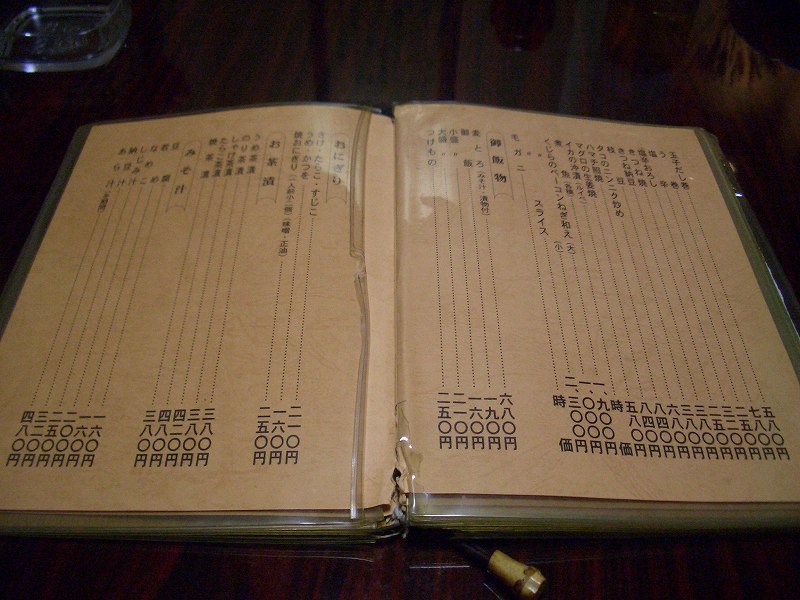 玉子だし巻 五八〇円
う巻 七八〇円
塩辛 二五〇円
塩辛おろし 三二〇円
きつね焼 二五〇円
きつね納豆 三八〇円
枝豆 三八〇円
タコのニンニク炒め 六八〇円
ハマチ照焼 八四〇円
マグロの生姜焼 八四〇円
イカの沖漬(ルイベ) 五八〇円
煮魚(各種) 時価
くじらのベーコンねぎ和え(大) 一、九〇〇円
〃(小) 一、〇〇〇円
〃 スライス 二、三〇〇円
毛ガニ 時価
御飯物
麦とろ(みそ汁・漬物付) 六八〇円
御飯 一九〇円
小盛〃 一六〇円
大盛〃 二一〇円
つけもの 二五〇円
おにぎり
さけ・たらこ・すじこ 二一〇円
うめ・かつを 一六〇円
焼おにぎり(一人前小二個)(味噌・正油) 二五〇円
お茶漬
うめ茶漬 三八〇円
のり茶漬 三八〇円
しゃけ茶漬 四二〇円
たらこ茶漬 四八〇円
焼茶漬 三八〇円
みそ汁
豆腐 一六〇円
若芽 一六〇円
なめこ 二〇〇円
しじみ 二五〇円
納豆汁 三二〇円
あら汁 四八〇円